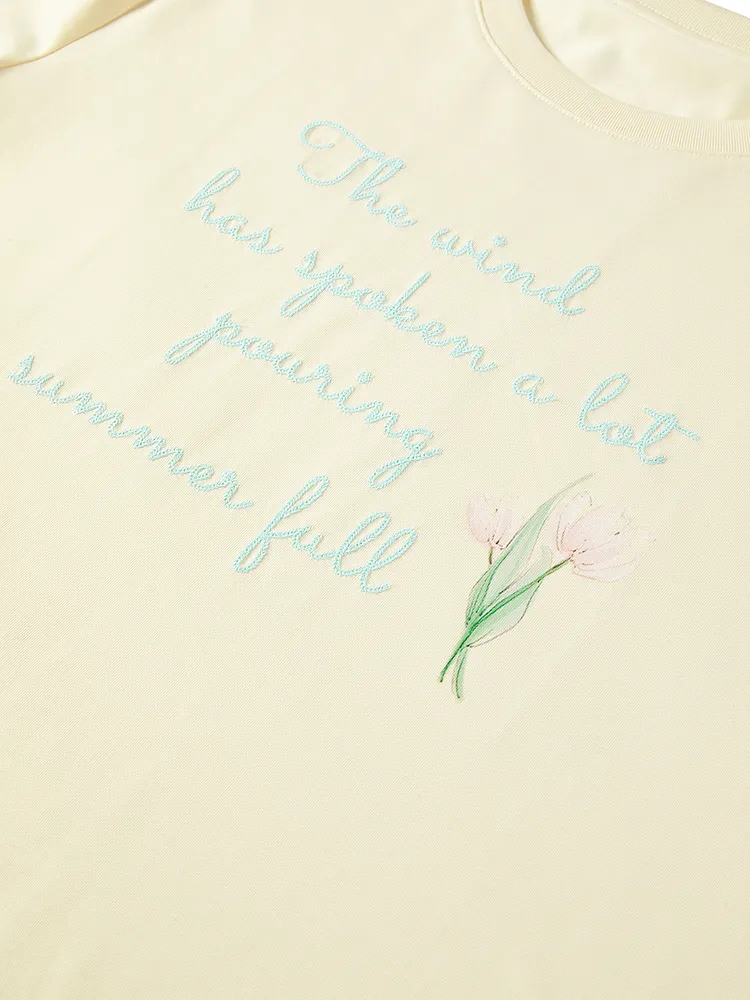 The wind
has spoken a lot
pouring
summer full